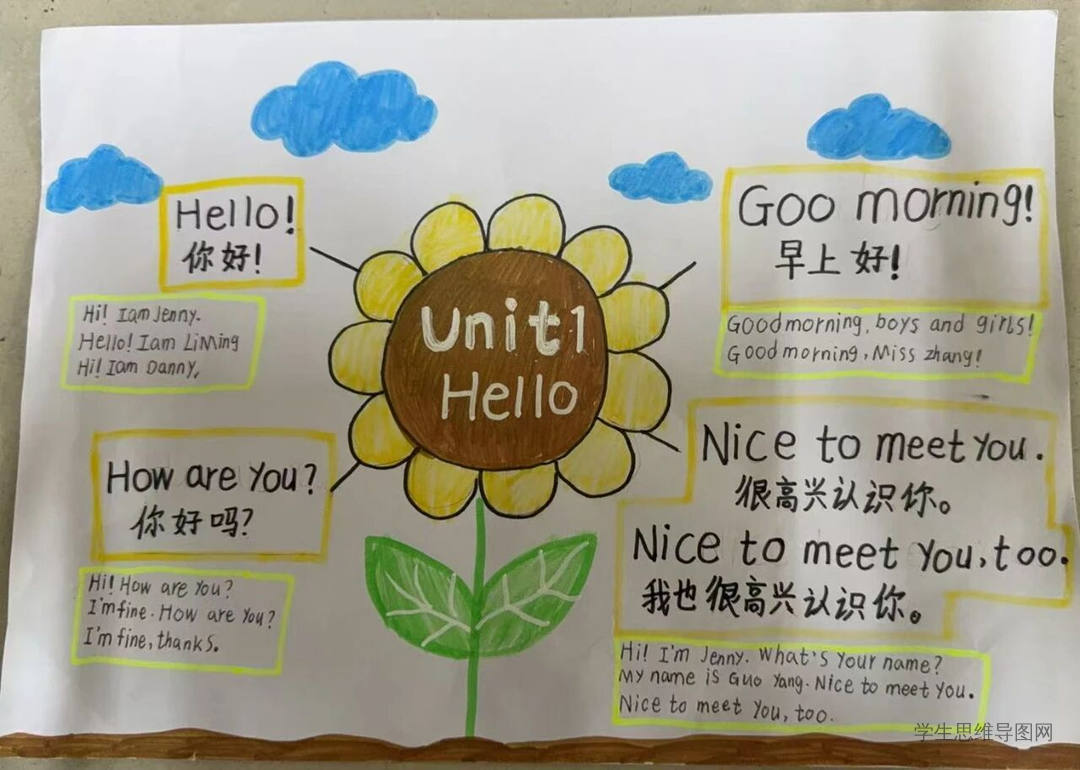 Unit1
Hello
Hello!
你好!
Hi! Iam Jenny.
Hello! Iam LiMing
Hi! Iam Danny,
How are You?
你好吗?
Hi! How are You?
I'm fine. How are You?
I'm fine, thanks.
Goo morning!
早上好!
Good morning, boys and girls!
Good morning, Miss zhang!
Nice to meet You.
很高兴认识你。
Nice to meet You, too.
我也很高兴认识你。
Hi! I'm Jenny. What's Your name?
My name is Guo Yang. Nice to meet You.
Nice to meet You, too.
学生思维导图网